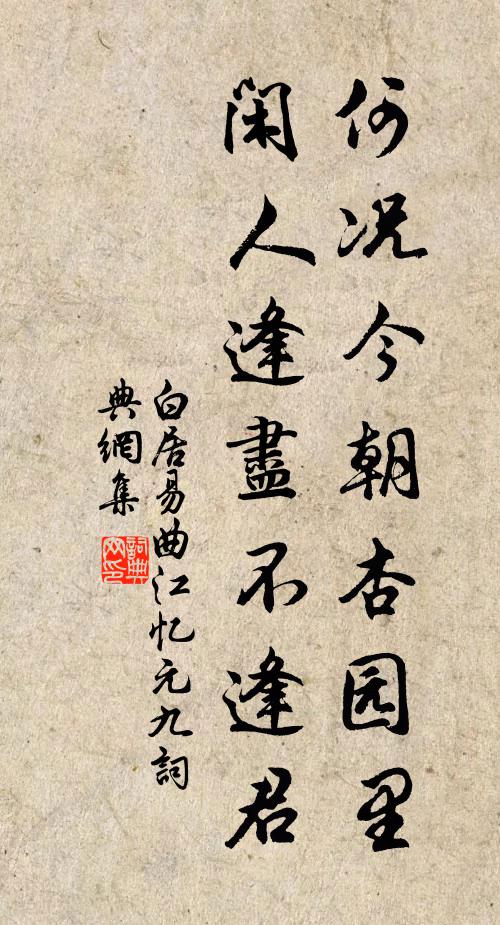 何况今朝杏园里
闲人逢盡不逢君
白居易曲江忆元九詞
典網集
詞典
网印